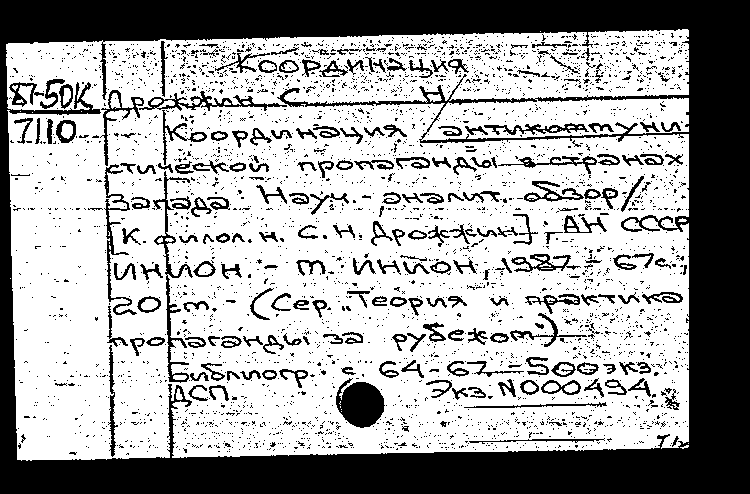 Координация
81-5ДК Дрожжин, С Н
7110 Координация антикоммуни-
стической пропаганды в странах
Запада: Науч.-аналит. обзор/
[К. филол. н. С. Н. Дрожжин]; АН СССР
ИНИОН. - М.: ИНИОН, 1987 - 67с.;
20 см. - (Сер. „Теория и практика
пропаганды за рубежом").
Библиогр.: с. 64-67. - 500 экз.
ДСП. Экз. N000494.